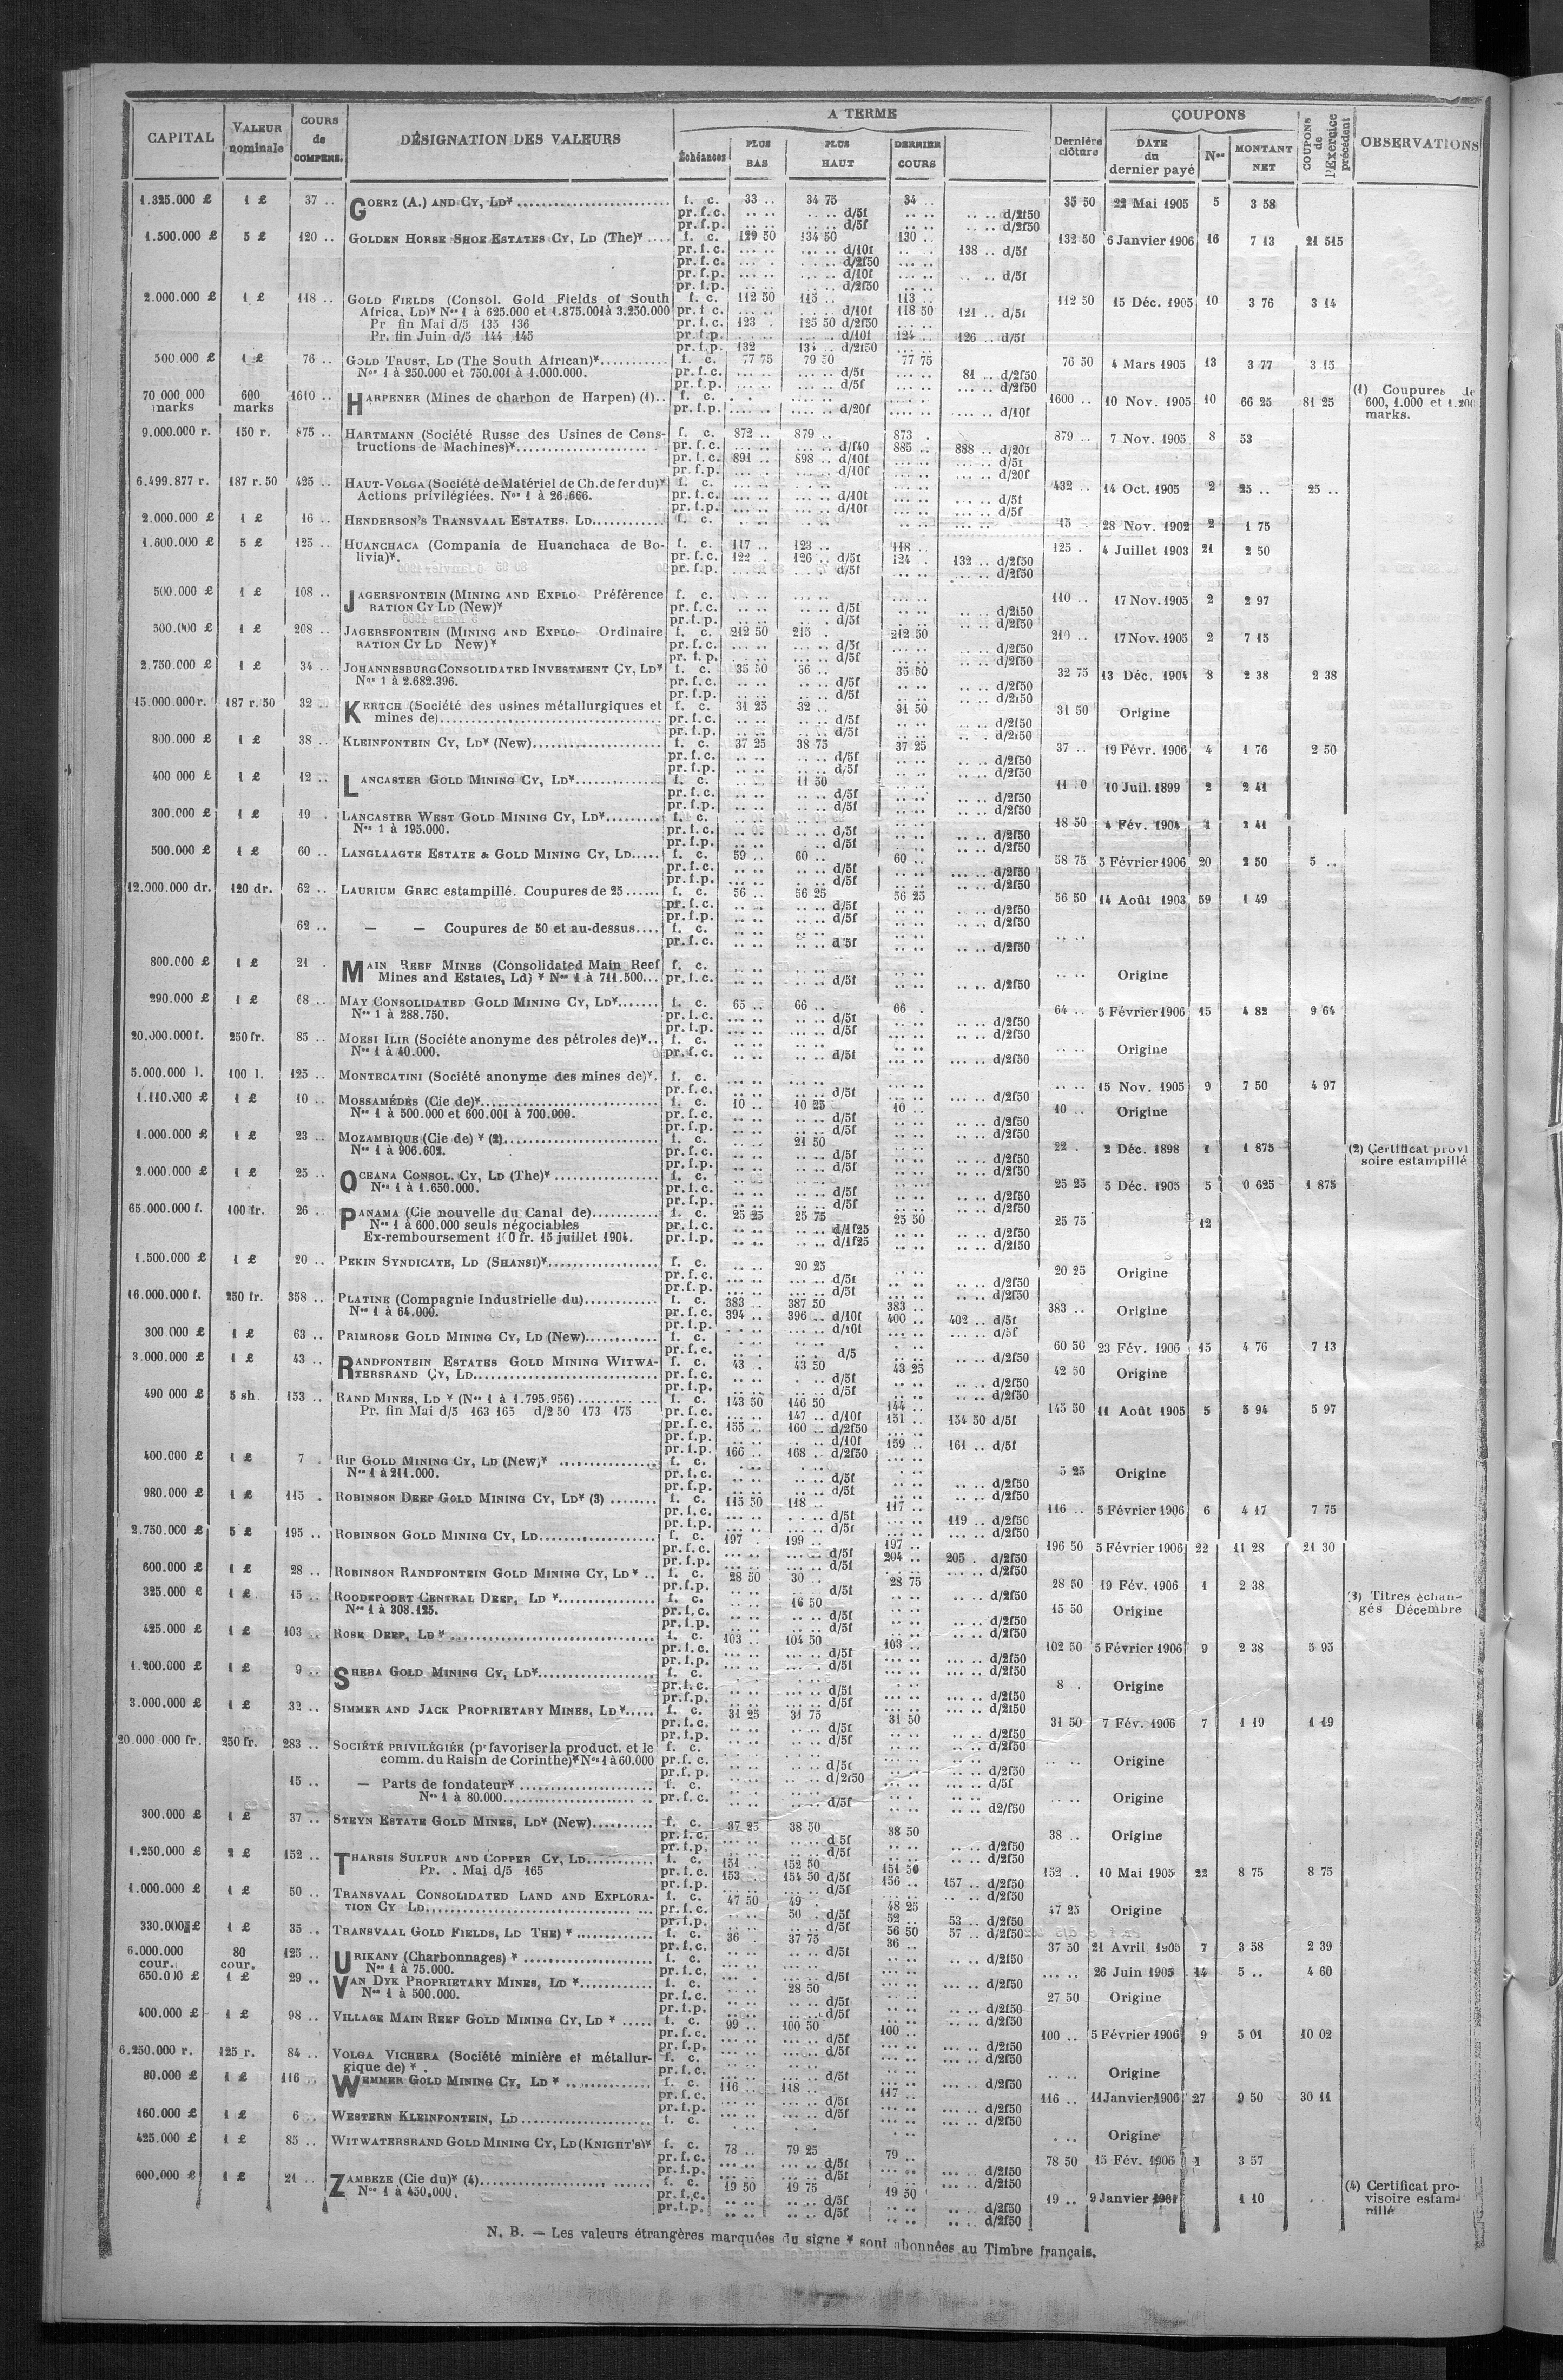 CAPITAL | VALEUR nominale | COURS de COMPENS. | DÉSIGNATION DES VALEURS | A TERME | Dernière clôture | COUPONS | COUPONS de l'Exercice précédent | OBSERVATIONS
Échéances | PLUS BAS | PLUS HAUT | DERNIER COURS | DATE du dernier payé | Nos | MONTANT NET
1.325.000 £ 1 £ 37 .. GOERZ (A.) AND CY, LD* f. c. 33 .. 34 75 34 .. 35 50 22 Mai 1905 5 3 58
pr. f. c. .. .. d/5f .. .. d/2f50
pr. f. p. .. .. d/5f .. .. d/2f50
1.500.000 £ 5 £ 120 .. GOLDEN HORSE SHOE ESTATES CY, LD (The)* f. c. 129 50 134 50 130 .. 132 50 6 Janvier 1906 16 7 13 21 515
pr. f. c. d/10f 138 .. d/5f
pr. f. c. d/2f50
pr. f. p. d/10f d/5f
pr. f. p. d/2f50
2.000.000 £ 1 £ 118 .. GOLD FIELDS (Consol. Gold Fields of South f. c. 112 50 115 .. 113 .. 112 50 15 Déc. 1905 10 3 76 3 14
Africa, LD)* Nos 1 à 625.000 et 1.875.001 à 3.250.000 pr. f. c. d/10f 118 50 121 .. d/5f
Pr fin Mai d/5 135 136 pr. f. c. 123 . 125 50 d/2f50
Pr. fin Juin d/5 144 145 pr. f. p. d/10f 124 .. 126 .. d/5f
pr. f. p. 132 d/2f50
500.000 £ 1 £ 76 .. GOLD TRUST, LD (The South African)* f. c. 77 75 79 50 77 75 76 50 4 Mars 1905 13 3 77 3 15
Nos 1 à 250.000 et 750.001 à 1.000.000. pr. f. c. d/5f 81 .. d/2f50
pr. f. p. d/5f d/2f50
70 000 000 marks 600 marks 1610 .. HARPENER (Mines de charbon de Harpen) (1).. f. c. 1600 .. 10 Nov. 1905 10 66 25 81 25 (1) Coupures de 600, 1.000 et 1.200 marks.
pr. f. p. d/20f d/10f
9.000.000 r. 150 r. 875 .. HARTMANN (Société Russe des Usines de Cons- f. c. 872 .. 879 .. 873 . 879 .. 7 Nov. 1905 8 53
tructions de Machines)* pr. f. c. d/f40 885 .. 888 .. d/20f
pr. f. c. 891 .. 898 .. d/10f d/5f
pr. f. p. d/10f d/20f
6.499.877 r. 187 r. 50 425 .. HAUT-VOLGA (Société de Matériel de Ch. de fer du)* f. c. 432 .. 14 Oct. 1905 2 25 .. 25 ..
Actions privilégiées. Nos 1 à 26.666. pr. f. c. d/10f d/5f
pr. f. p. d/10f d/5f
2.000.000 £ 1 £ 16 .. HENDERSON'S TRANSVAAL ESTATES. LD f. c. 15 28 Nov. 1902 2 1 75
1.600.000 £ 5 £ 125 .. HUANCHACA (Compania de Huanchaca de Bo- f. c. 117 .. 123 .. 118 .. 125 . 4 Juillet 1903 21 2 50
livia)*. pr. f. c. 122 . 126 .. d/5f 124 . 132 .. d/2f50
pr. f. p. d/5f d/2f50
500.000 £ 1 £ 108 .. JAGERSFONTEIN (MINING AND EXPLO- Préférence f. c. 110 .. 17 Nov. 1905 2 2 97
RATION CY LD (New)* pr. f. c. d/5f d/2f50
pr. f. p. d/5f d/2f50
500.000 £ 1 £ 208 .. JAGERSFONTEIN (MINING AND EXPLO- Ordinaire f. c. 212 50 215 . 212 50 210 .. 17 Nov. 1905 2 7 15
RATION CY LD New)* pr. f. c. d/5f d/2f50
pr. f. p. d/5f d/2f50
2.750.000 £ 1 £ 34 .. JOHANNESBURG CONSOLIDATED INVESTMENT CY, LD* f. c. 35 50 36 .. 35 50 32 75 13 Déc. 1904 3 2 38 2 38
Nos 1 à 2.682.396. pr. f. c. d/5f d/2f50
pr. f. p. d/5f d/2f50
15.000.000 r. 187 r. 50 32 .. KERTCH (Société des usines métallurgiques et f. c. 31 25 32 .. 31 50 31 50 Origine
mines de) pr. f. c. d/5f d/2f50
pr. f. p. d/5f d/2f50
800.000 £ 1 £ 38 .. KLEINFONTEIN CY, LD* (New) f. c. 37 25 38 75 37 25 37 .. 19 Févr. 1906 4 1 76 2 50
pr. f. c. d/5f d/2f50
pr. f. p. d/5f d/2f50
400 000 £ 1 £ 12 .. LANCASTER GOLD MINING CY, LD* f. c. 11 50 10 Juil. 1899 2 2 41
pr. f. c. d/5f d/2f50
pr. f. p. d/5f d/2f50
300.000 £ 1 £ 19 . LANCASTER WEST GOLD MINING CY, LD* f. c. 18 50 4 Fév. 1904 1 2 41
Nos 1 à 195.000. pr. f. c. d/5f d/2f50
pr. f. p. d/5f d/2f50
500.000 £ 1 £ 60 .. LANGLAAGTE ESTATE & GOLD MINING CY, LD f. c. 59 .. 60 .. 60 .. 58 75 5 Février 1906 20 2 50 5 ..
pr. f. c. d/5f d/2f50
pr. f. p. d/5f d/2f50
12.000.000 dr. 120 dr. 62 .. LAURIUM GREC estampillé. Coupures de 25 f. c. 56 .. 56 25 56 25 56 50 14 Août 1903 59 1 49
pr. f. c. d/5f d/2f50
pr. f. p. d/5f d/2f50
62 .. — — Coupures de 50 et au-dessus f. c.
pr. f. c. d/5f d/2f50
800.000 £ 1 £ 21 . MAIN REEF MINES (Consolidated Main Reef f. c. Origine
Mines and Estates, Ld) * Nos 1 à 711.500 pr. f. c. d/5f d/2f50
290.000 £ 1 £ 68 .. MAY CONSOLIDATED GOLD MINING CY, LD* f. c. 65 .. 66 .. 66 . 64 .. 5 Février 1906 15 4 82 9 64
Nos 1 à 288.750. pr. f. c. d/5f d/2f50
pr. f. p. d/5f d/2f50
20.000.000 f. 250 fr. 85 .. MOESI ILIR (Société anonyme des pétroles de)* f. c. Origine
Nos 1 à 40.000. pr. f. c. d/5f d/2f50
5.000.000 l. 100 l. 125 .. MONTECATINI (Société anonyme des mines de)*. f. c. 15 Nov. 1905 9 7 50 4 97
pr. f. c. d/5f d/2f50
1.110.000 £ 1 £ 10 .. MOSSAMÉDÈS (Cie de)* f. c. 10 .. 10 25 10 .. 10 .. Origine
Nos 1 à 500.000 et 600.001 à 700.000. pr. f. c. d/5f d/2f50
pr. f. p. d/5f d/2f50
1.000.000 £ 1 £ 23 .. MOZAMBIQUE (Cie de) * (2) f. c. 21 50 22 . 2 Déc. 1898 1 1 875 (2) Certificat provisoire estampillé
Nos 1 à 906.602. pr. f. c. d/5f d/2f50
pr. f. p. d/5f d/2f50
2.000.000 £ 1 £ 25 .. OCEANA CONSOL. CY, LD (The)* f. c. 25 25 5 Déc. 1905 5 0 625 1 875
Nos 1 à 1.650.000. pr. f. c. d/5f d/2f50
pr. f. p. d/5f d/2f50
65.000.000 f. 100 fr. 26 .. PANAMA (Cie nouvelle du Canal de) f. c. 25 25 25 75 25 50 25 75 12
Nos 1 à 600.000 seuls négociables pr. f. c. d/1f25 d/2f50
Ex-remboursement 100 fr. 15 juillet 1904. pr. f. p. d/1f25 d/2f50
1.500.000 £ 1 £ 20 .. PEKIN SYNDICATE, LD (SHANSI)* f. c. 20 25 20 25 Origine
pr. f. c. d/5f d/2f50
pr. f. p. d/5f d/2f50
16.000.000 f. 250 fr. 358 .. PLATINE (Compagnie Industrielle du) f. c. 383 .. 387 50 383 .. 383 .. Origine
Nos 1 à 64.000. pr. f. c. 394 .. 396 .. d/10f 400 .. 402 .. d/5f
pr. f. p. d/10f d/5f
300 000 £ 1 £ 63 .. PRIMROSE GOLD MINING CY, LD (New) f. c. 60 50 23 Fév. 1906 15 4 76 7 13
pr. f. c. d/5 d/2f50
3.000.000 £ 1 £ 43 .. RANDFONTEIN ESTATES GOLD MINING WITWA- f. c. 43 . 43 50 43 25 42 50 Origine
TERSRAND CY, LD pr. f. c. d/5f d/2f50
pr. f. p. d/5f d/2f50
490 000 £ 5 sh 153 .. RAND MINES, LD * (Nos 1 à 1.795.956) f. c. 143 50 146 50 144 .. 145 50 11 Août 1905 5 5 94 5 97
Pr. fin Mai d/5 163 165 d/2 50 173 175 pr. f. c. 147 .. d/10f 151 .. 154 50 d/5f
pr. f. c. 155 .. 160 .. d/2f50
pr. f. p. d/10f 159 .. 161 .. d/5f
pr. f. p. 166 .. 168 .. d/2f50
400.000 £ 1 £ 7 . RIP GOLD MINING CY, LD (New)* f. c. 5 25 Origine
Nos 1 à 211.000. pr. f. c. d/5f d/2f50
pr. f. p. d/5f d/2f50
980.000 £ 1 £ 115 . ROBINSON DEEP GOLD MINING CY, LD* (3) f. c. 115 50 118 .. 117 .. 116 .. 5 Février 1906 6 4 17 7 75
pr. f. c. d/5f 119 .. d/2f50
pr. f. p. d/5f d/2f50
2.750.000 £ 5 £ 195 .. ROBINSON GOLD MINING CY, LD f. c. 197 . 199 .. 197 .. 196 50 5 Février 1906 22 11 28 21 30
pr. f. c. d/5f 204 .. 205 . d/2f50
pr. f. p. d/5f d/2f50
600.000 £ 1 £ 28 .. ROBINSON RANDFONTEIN GOLD MINING CY, LD * f. c. 28 50 30 .. 28 75 28 50 19 Fév. 1906 1 2 38
pr. f. p. d/5f d/2f50
325.000 £ 1 £ 15 .. ROODEPOORT CENTRAL DEEP, LD * f. c. 16 50 15 50 Origine (3) Titres échangés Décembre
Nos 1 à 308.125. pr. f. c. d/5f d/2f50
pr. f. p. d/5f d/2f50
425.000 £ 1 £ 103 .. ROSE DEEP, LD * f. c. 103 .. 104 50 103 .. 102 50 5 Février 1906 9 2 38 5 95
pr. f. c. d/5f d/2f50
pr. f. p. d/5f d/2f50
1.200.000 £ 1 £ 9 .. SHEBA GOLD MINING CY, LD* f. c. 8 . Origine
pr. f. c. d/5f d/2f50
pr. f. p. d/5f d/2f50
3.000.000 £ 1 £ 32 .. SIMMER AND JACK PROPRIETARY MINES, LD * f. c. 31 25 31 75 31 50 31 50 7 Fév. 1906 7 1 19 1 49
pr. f. c. d/5f d/2f50
pr. f. p. d/5f d/2f50
20.000 000 fr. 250 fr. 283 .. SOCIÉTÉ PRIVILÉGIÉE (pr favoriser la product. et le f. c. Origine
comm. du Raisin de Corinthe)* Nos 1 à 60.000 pr. f. c. d/5f d/2f50
pr. f. p. d/2f50 d/5f
15 .. — Parts de fondateur* f. c. Origine
Nos 1 à 80.000 pr. f. c. d/5f d2/f50
300.000 £ 1 £ 37 .. STEYN ESTATE GOLD MINES, LD* (New) f. c. 37 25 38 50 38 50 38 .. Origine
pr. f. c. d 5f d/2f50
pr. f. p. d/5f d/2f50
1.250.000 £ 2 £ 152 .. THARSIS SULFUR AND COPPER CY, LD f. c. 151 152 50 151 50 152 .. 10 Mai 1905 22 8 75 8 75
Pr. . Mai d/5 165 pr. f. c. 153 154 50 d/5f 156 .. 157 .. d/2f50
pr. f. p. d/5f d/2f50
1.000.000 £ 1 £ 50 .. TRANSVAAL CONSOLIDATED LAND AND EXPLORA- f. c. 47 50 49 . 48 25 47 25 Origine
TION CY LD pr. f. c. 50 .. d/5f 52 .. 53 .. d/2f50
pr. f. p. d/5f 56 50 57 .. d/2f50
330.000 £ 1 £ 35 .. TRANSVAAL GOLD FIELDS, LD THE) * f. c. 36 . 37 75 36 .. 37 50 21 Avril 1905 7 3 58 2 39
pr. f. c. d/5f d/2f50
6.000.000 cour. 80 cour. 125 .. URIKANY (Charbonnages) * f. c. 26 Juin 1905 14 5 .. 4 60
Nos 1 à 75.000. pr. f. c. d/5f d/2f50
650.000 £ 1 £ 29 .. VAN DYK PROPRIETARY MINES, LD * f. c. 28 50 27 50 Origine
Nos 1 à 500.000. pr. f. c. d/5f d/2f50
pr. f. p. d/5f d/2f50
400.000 £ 1 £ 98 .. VILLAGE MAIN REEF GOLD MINING CY, LD * f. c. 99 .. 100 50 100 .. 100 .. 5 Février 1906 9 5 01 10 02
pr. f. c. d/5f d/2f50
pr. f. p. d/5f d/2f50
6.250.000 r. 125 r. 84 .. VOLGA VICHERA (Société minière et métallur- f. c. Origine
gique de) * . pr. f. c. d/5f d/2f50
80.000 £ 1 £ 116 .. WEMMER GOLD MINING CY, LD * f. c. 116 .. 118 .. 117 .. 116 .. 11 Janvier 1906 27 9 50 30 11
pr. f. c. d/5f d/2f50
pr. f. p. d/5f d/2f50
160.000 £ 1 £ 6 .. WESTERN KLEINFONTEIN, LD f. c. Origine
425.000 £ 1 £ 85 .. WITWATERSRAND GOLD MINING CY, LD (KNIGHT'S)* f. c. 78 .. 79 25 79 .. 78 50 15 Fév. 1906 1 3 57
pr. f. c. d/5f d/2f50
pr. f. p. d/5f d/2f50
600.000 £ 1 £ 21 .. ZAMBEZE (Cie du)* (4) f. c. 19 50 19 75 19 50 19 .. 9 Janvier 1901 1 10 (4) Certificat provisoire estampillé
Nos 1 à 450.000. pr. f. c. d/5f d/2f50
pr. f. p. d/5f d/2f50
N. B. — Les valeurs étrangères marquées du signe * sont abonnées au Timbre français.